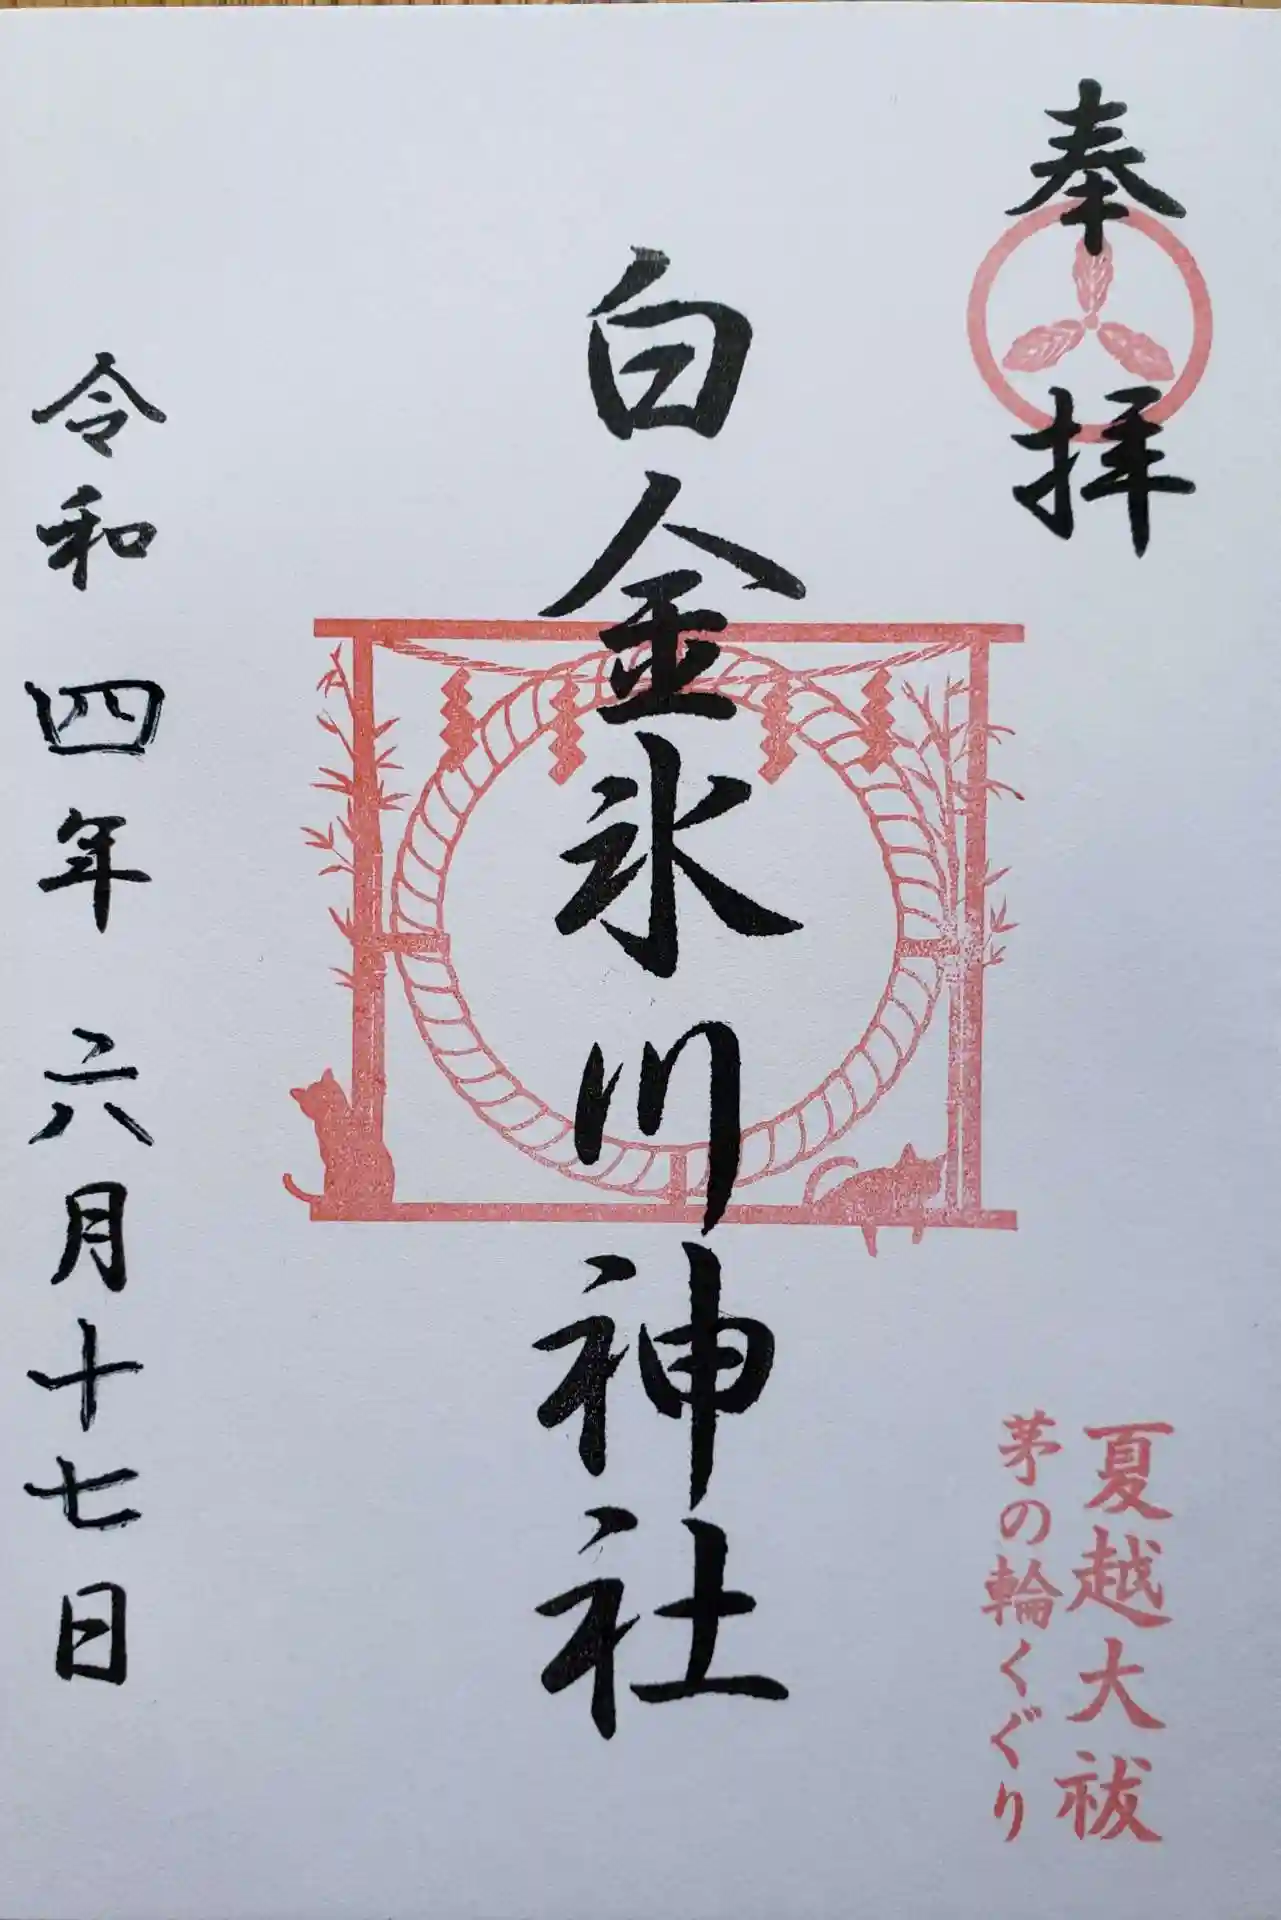 奉拝
白金氷川神社
夏越大祓
茅の輪くぐり
令和四年六月十七日